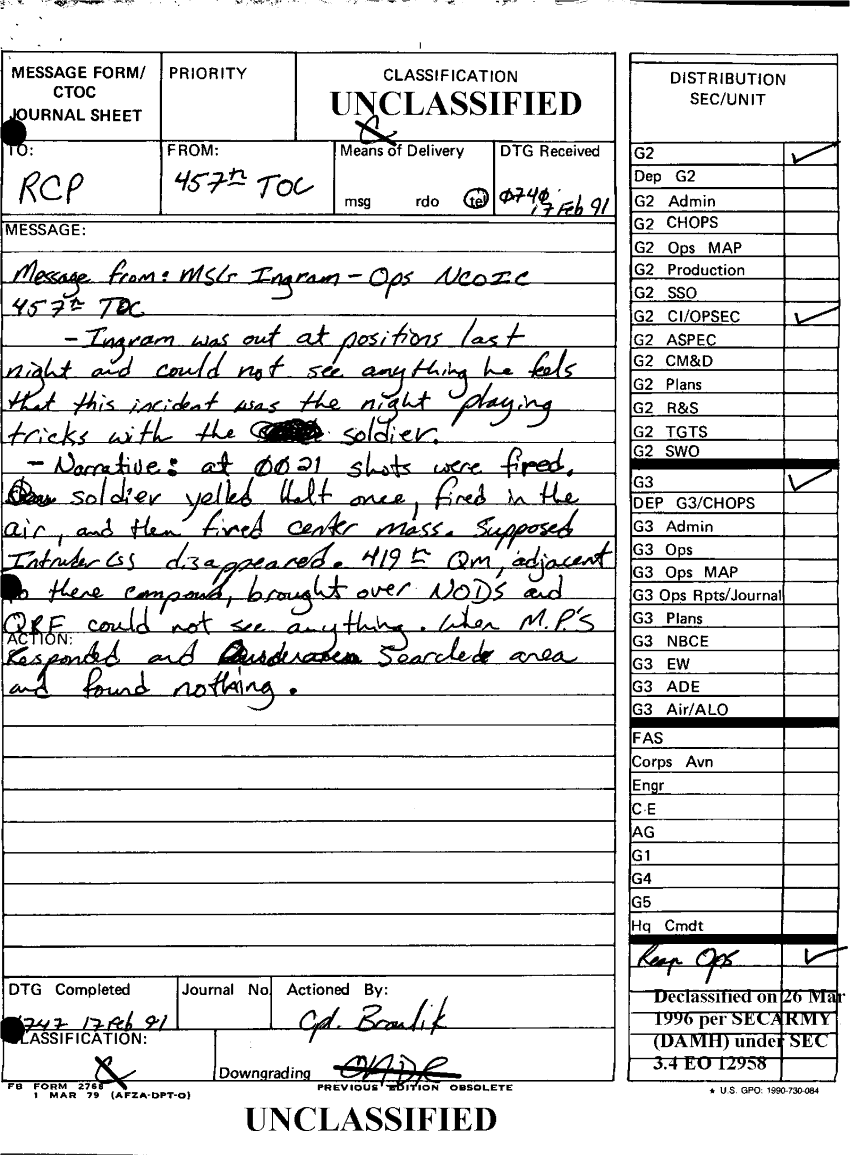 MESSAGE FORM/
CTOC
JOURNAL SHEET
PRIORITY
CLASSIFICATION
UNCLASSIFIED
TO:
RCP
FROM:
457th TOC
Means of Delivery
msg rdo tel
DTG Received
0740
17 Feb 91
MESSAGE:
Message from: MSgr Ingram - Ops NCOIC
457th TOC
- Ingram was out at positions last
night and could not see anything he feels
that this incident was the night playing
tricks with the soldier.
- Narrative: at 0021 shots were fired.
soldier yelled Halt once, fired in the
air, and then fired center mass. Supposed
Intruder(s) disappeared. 419th Qm, adjacent
to there compound, brought over NODs and
QRF could not see anything. When M.P.'s
ACTION:
Responded and Searched area
and found nothing.
DTG Completed
0747 17 Feb 91
Journal No.
Actioned By:
Cpl.
CLASSIFICATION:
Downgrading
FB FORM 2768
1 MAR 79 (AFZA-DPT-O)
PREVIOUS EDITION OBSOLETE
UNCLASSIFIED
DISTRIBUTION
SEC/UNIT
G2
Dep G2
G2 Admin
G2 CHOPS
G2 Ops MAP
G2 Production
G2 SSO
G2 CI/OPSEC
G2 ASPEC
G2 CM&D
G2 Plans
G2 R&S
G2 TGTS
G2 SWO
G3
DEP G3/CHOPS
G3 Admin
G3 Ops
G3 Ops MAP
G3 Ops Rpts/Journal
G3 Plans
G3 NBCE
G3 EW
G3 ADE
G3 Air/ALO
FAS
Corps Avn
Engr
C-E
AG
G1
G4
G5
Hq Cmdt
Rear Ops
Declassified on 26 Mar
1996 per SECARMY
(DAMH) under SEC
3.4 EO 12958
★ U.S. GPO: 1990-730-084